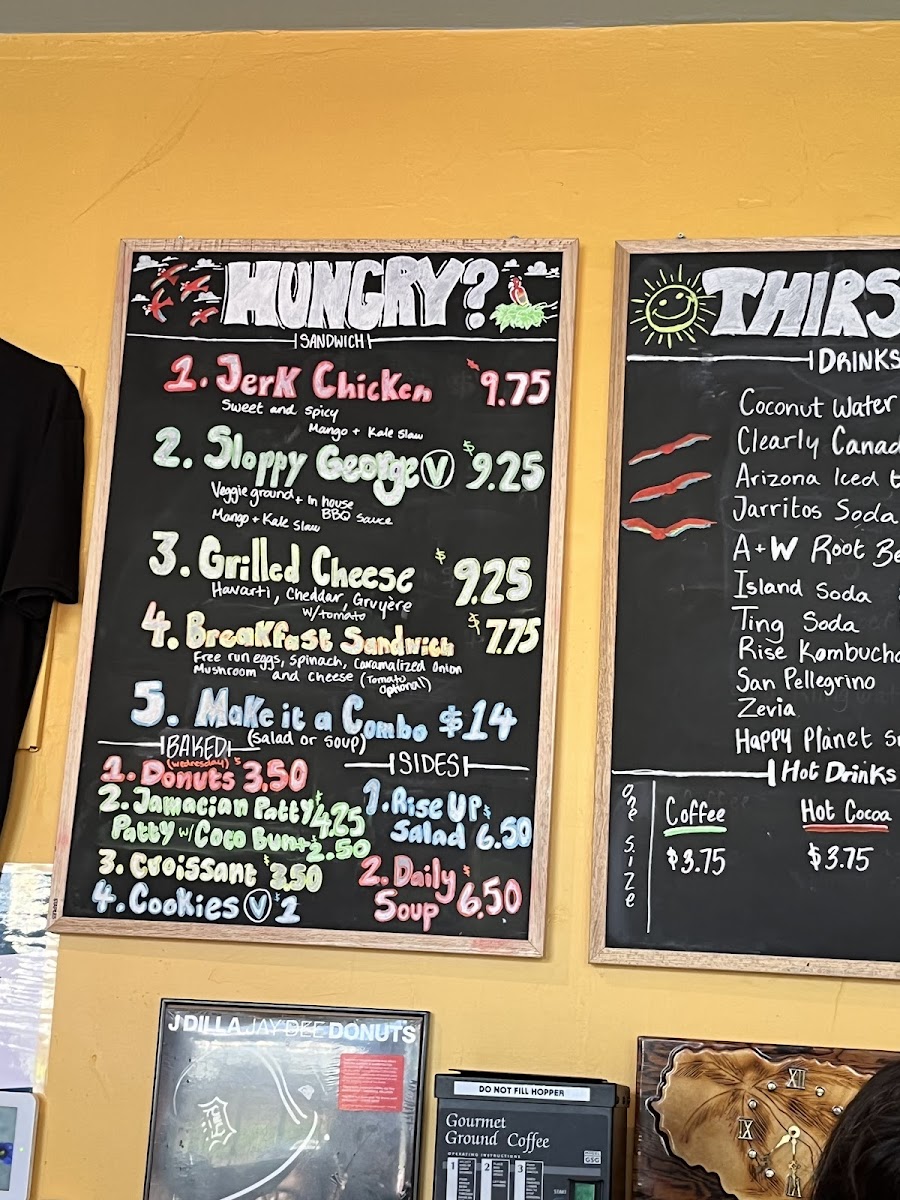 HUNGRY?
SANDWICH
1. Jerk Chicken $9.75
Sweet and spicy
Mango + Kale Slaw
2. Sloppy George V $9.25
Veggie ground + In house
BBQ sauce
Mango + Kale Slaw
3. Grilled Cheese $9.25
Havarti, Cheddar, Gruyère
w/tomato
4. Breakfast Sandwich $7.75
Free run eggs, Spinach, Caramalized Onion
Mushroom and Cheese (Tomato
Optional)
5. Make it a Combo $14
(Salad or Soup)
BAKED
(Wednesday)
1. Donuts $3.50
2. Jamacian Patty $4.25
Patty w/ Coco Bun + $2.50
3. Croissant $3.50
4. Cookies V $2
SIDES
1. Rise UP
Salad $6.50
2. Daily
Soup $6.50
THIRS
DRINKS
Coconut Water
Clearly Canad
Arizona Iced t
Jarritos Soda
A+W Root Be
Island Soda
Ting Soda
Rise Kombucha
San Pellegrino
Zevia
Happy Planet S
Hot Drinks
One Size
Coffee
$3.75
Hot Cocoa
$3.75
J DILLA JAY DEE DONUTS
DO NOT FILL HOPPER
Gourmet
Ground Coffee
OPERATING INSTRUCTIONS
1 2 3
START
XII
IX